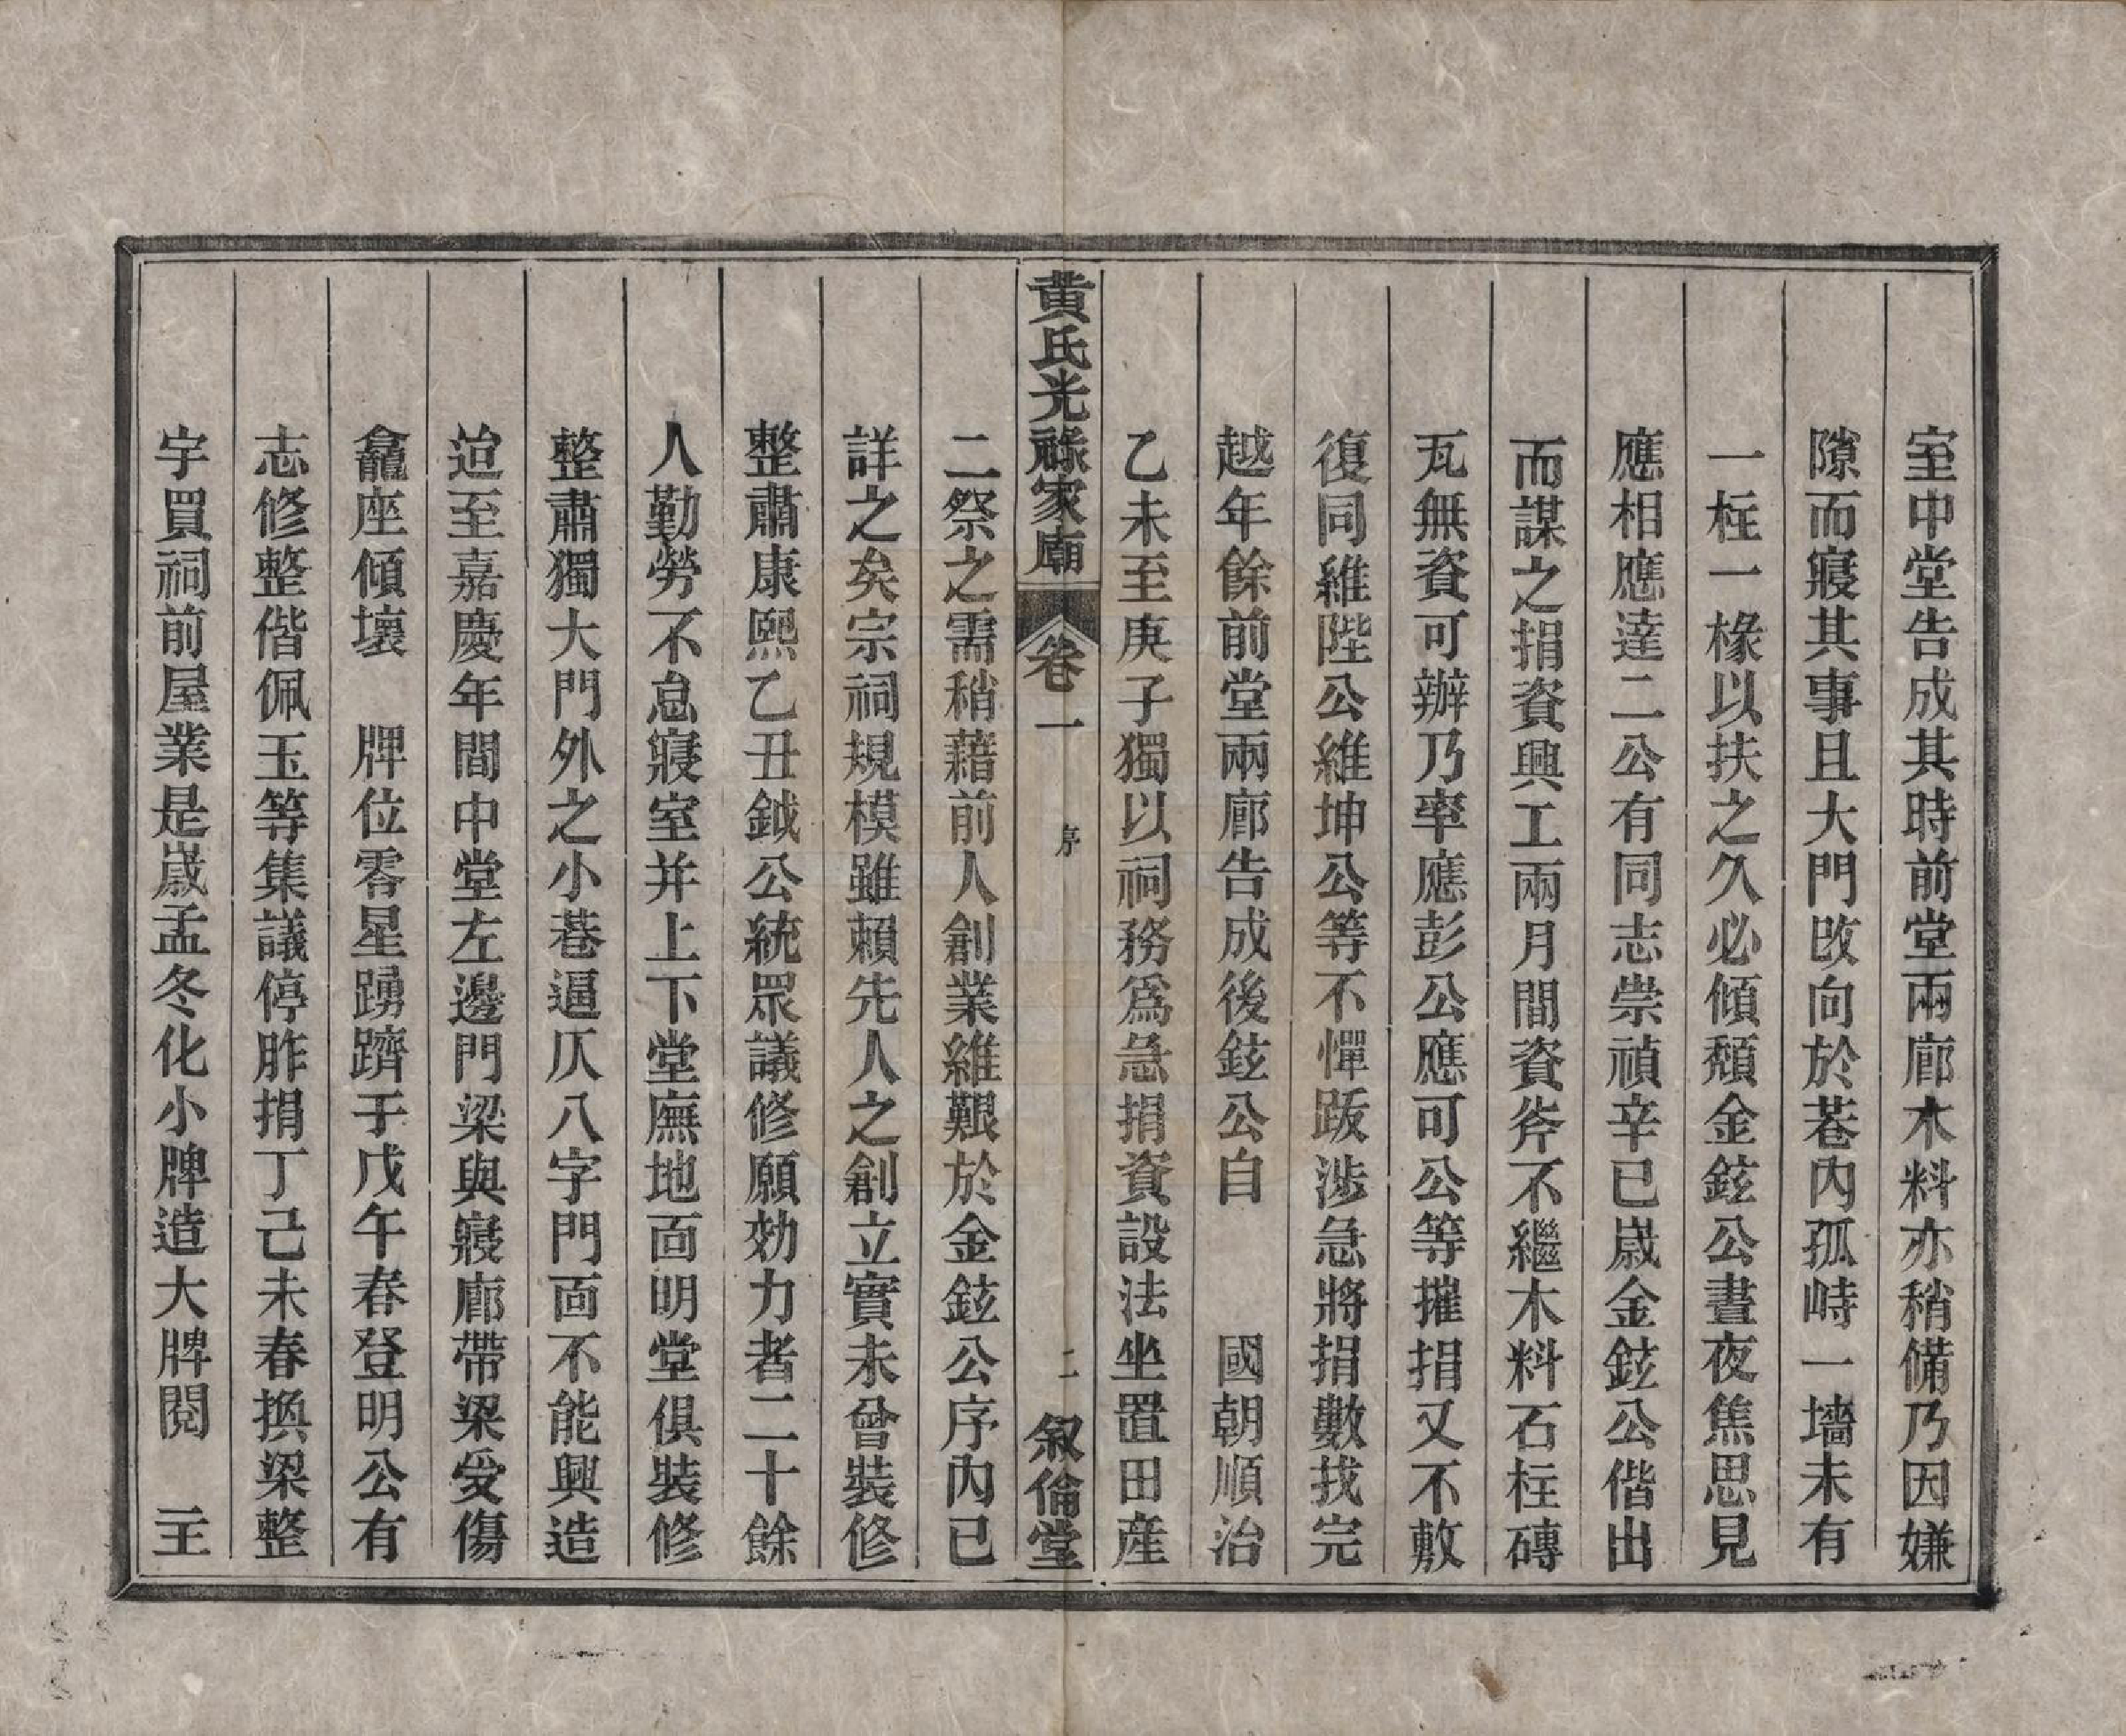 室中堂告成其時前堂兩廊木料亦稍備乃因嫌
隙而寢其事且大門改向於巷內孤峙一墻未有
一柱一椽以扶之久必傾頽金鉉公晝夜焦思見
應相應達二公有同志崇禎辛巳歲金鉉公偕出
而謀之捐資興工兩月間資斧不繼木料石柱磚
瓦無資可辦乃率應彭公應可公等摧捐又不敷
復同維陛公維坤公等不憚跋涉急將捐數找完
越年餘前堂兩廊告成後鉉公自 國朝順治
乙未至庚子獨以祠務爲急捐資設法坐置田産
黄氏光祿家廟 卷一 序 二 叙倫堂
二祭之需稍藉前人創業維艱於金鉉公序內已
詳之矣宗祠規模雖賴先人之創立實未曾裝修
整肅康熙乙丑鉞公統眾議修願効力者二十餘
人勤勞不怠寢室并上下堂廡地面明堂俱裝修
整肅獨大門外之小巷逼仄八字門面不能興造
迨至嘉慶年間中堂左邊門梁與寢廊帶梁受傷
龕座傾壞 牌位零星踴躋于戊午春登明公有
志修整偕佩玉等集議停胙捐丁己未春換梁整
宇買祠前屋業是歲孟冬化小牌造大牌閱 主